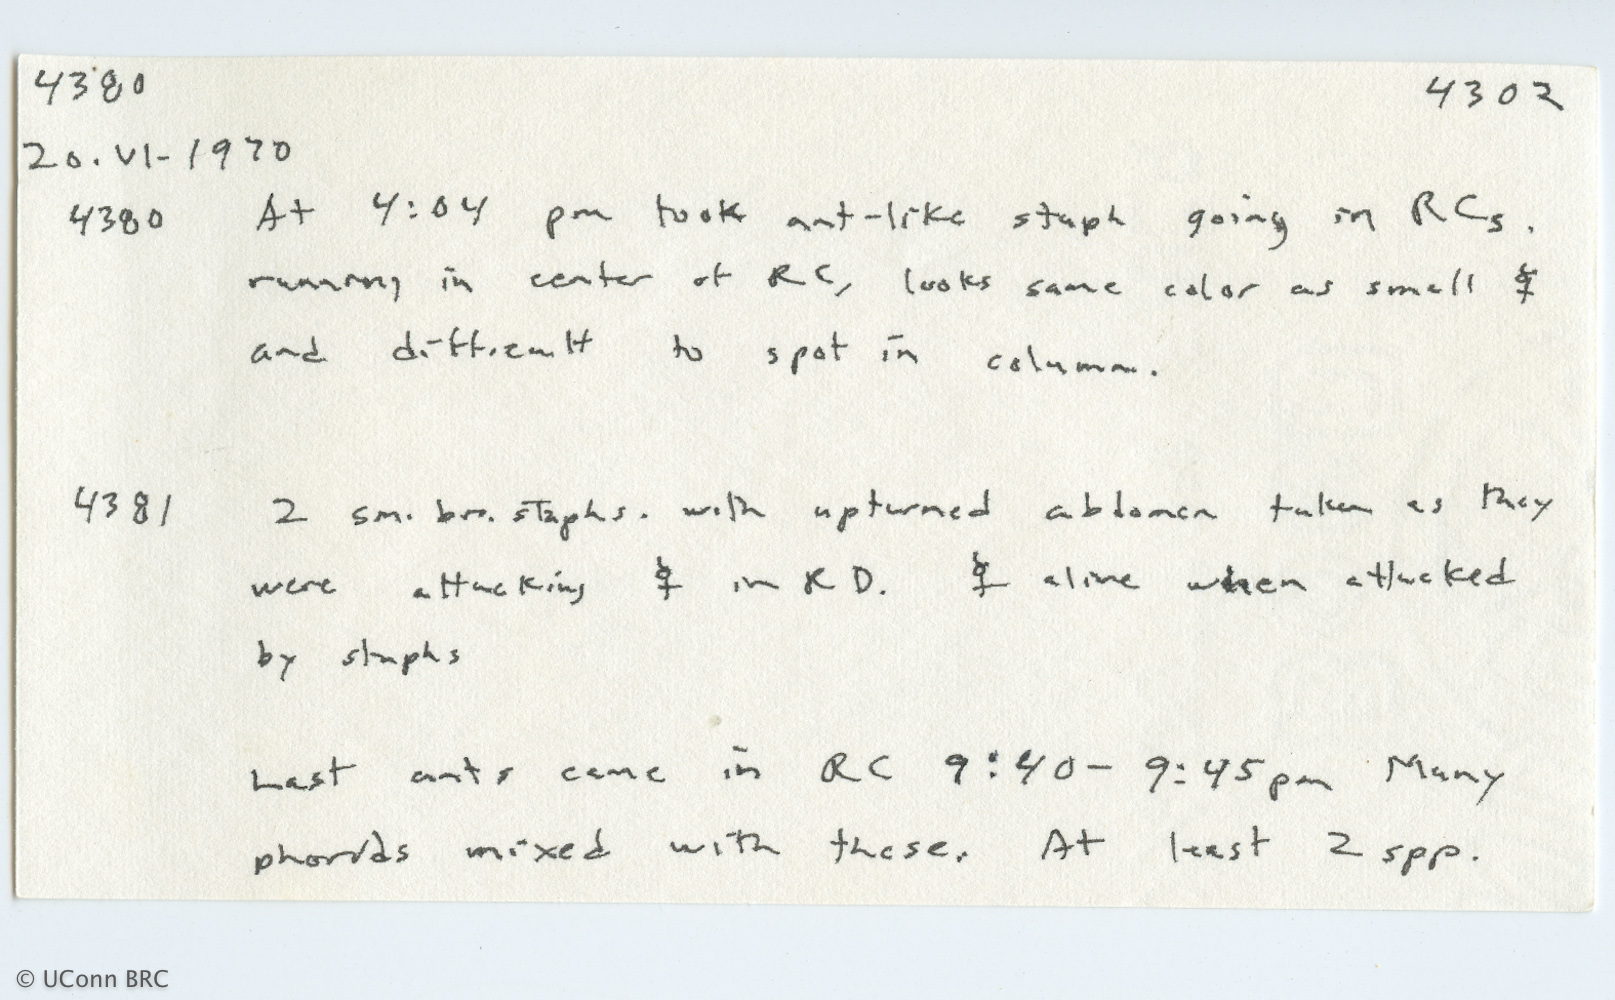 4380 4302
20.VI-1970
4380 At 4:04 pm took ant-like staph going in RCs.
running in center of RC, looks same color as small ☿
and difficult to spot in column.
4381 2 sm. brn. staphs. with upturned abdomen taken as they
were attacking ☿ in RD. ☿ alive when attacked
by staphs
Last ants came in RC 9:40-9:45pm Many
phorids mixed with these. At least 2 spp.
© UConn BRC